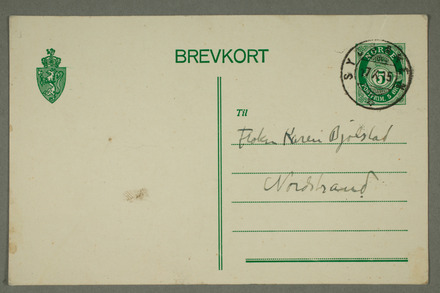 BREVKORT
NORGE
5
Til
Frøken Karen Bjølstad
Nordstrand